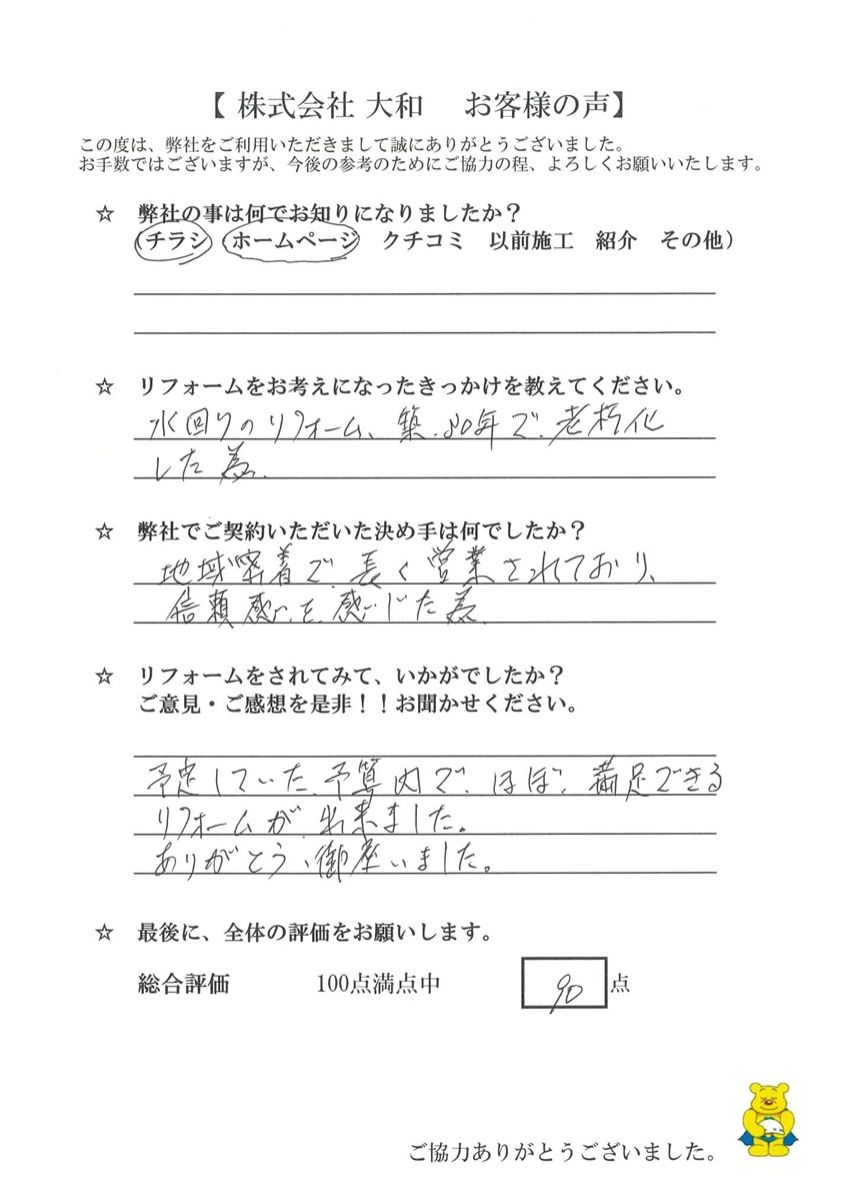 【 株式会社 大和　お客様の声】
この度は、弊社をご利用いただきまして誠にありがとうございました。
お手数ではございますが、今後の参考のためにご協力の程、よろしくお願いいたします。
☆ 弊社の事は何でお知りになりましたか？
（チラシ　ホームページ　クチコミ　以前施工　紹介　その他）
☆ リフォームをお考えになったきっかけを教えてください。
水回りのリフォーム、築80年で老朽化
した為
☆ 弊社でご契約いただいた決め手は何でしたか？
地域密着で長く営業されており、
信頼感を感じた為
☆ リフォームをされてみて、いかがでしたか？
ご意見・ご感想を是非！！お聞かせください。
予定していた予算内で、ほぼ、満足できる
リフォームが出来ました。
ありがとう御座いました。
☆ 最後に、全体の評価をお願いします。
総合評価　100点満点中　90点
ご協力ありがとうございました。